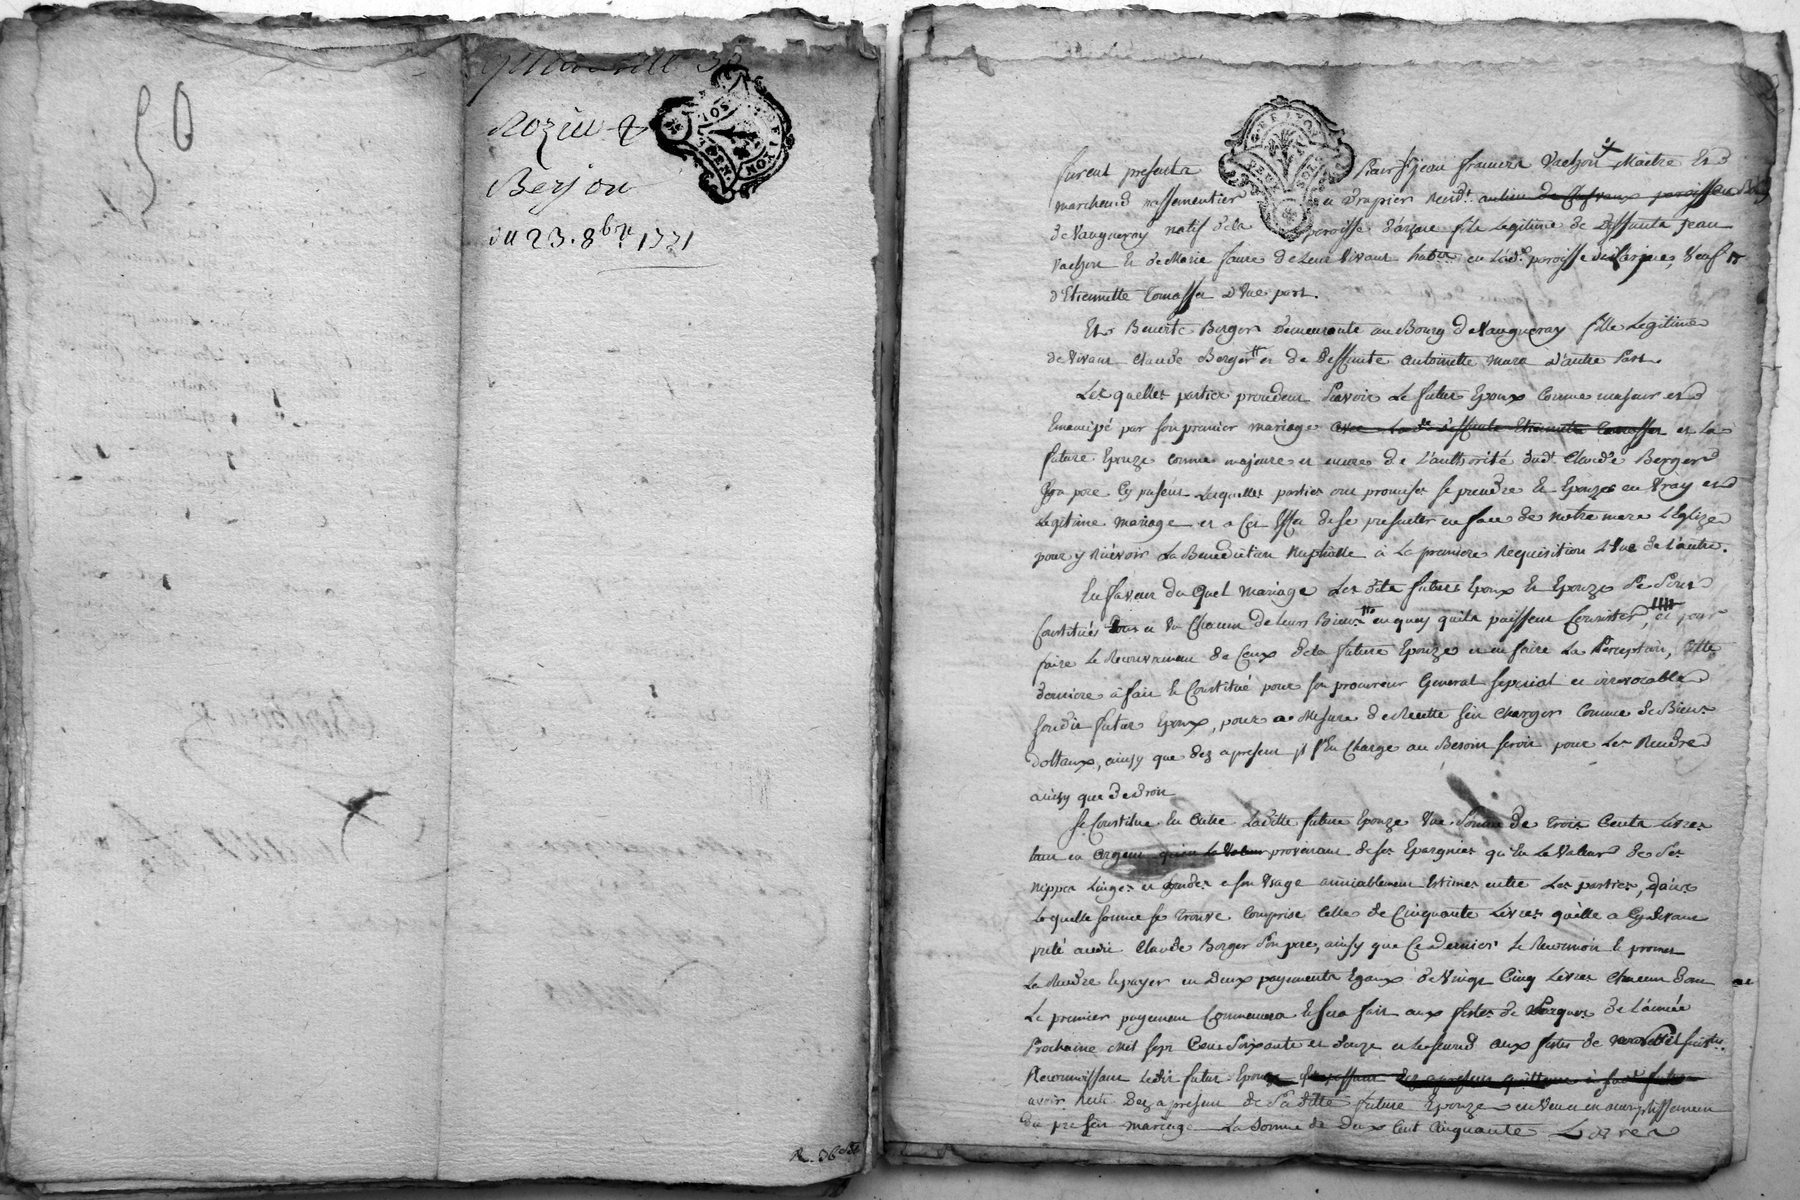 50
Berjon
du 23. 8bre 1771
R. 36
GEN. DE LYON
furent presents Sieur jean francois Vachon Maitre et
marchand passementier et drapier resid.t au lieu de paroisse
de Vaugneray natif de la paroisse d'arjoue fils Legitime de Deffunts Jean
Vachon et de Marie faure de leur Vivant habit. en lad.e paroisse de Larjoue, Veuf
d'Etiennette Comassa d'Une part.
Et Benoite Berger demeurante au Bourg de Vaugneray fille Legitime
de Vivant Claude Berger et de Deffunte Antoinette mura d'autre Part
Les quelles parties procedant Sçavoir Le futur Epoux Comme majeur et
Emancipé par son premier mariage avec lad.e deffunte Etiennette Comassa et La
future Epouze comme majeure et encore de L'authorité dud.t Claude Berger
Son pere Cy present Lesquelles parties ont promises se prendre et Epouzer en Vray et
Legitime Mariage et a Cet Effet de se presenter en face de notre mere l'Eglize
pour y Recevoir La Benediction Nuptialle à La premiere Requisition L'Une de L'autre.
En faveur du Quel Mariage Les dits futurs Epoux et Epouze Se Sont
Constitués tous et Un Chacun de Leurs Biens en quoy qu'ils puissent Consister, et pour
faire Le Recouvrement de Ceux de la future Epouze et en faire La Perception, Cette
derniere a fait et Constitué pour son procureur General special et irrevocable
sondit futur Epoux, pour a Mesure de Recette s'en Charger Comme de Biens
dottaux, ainsy que dez apresent il s'En Charge au Besoin seroit pour Les Rendre
ainsy que de droit
Se Constitue En Outre Laditte future Epouze Une Somme de trois Cents Livres
tant en argent qu'en la Valeur provenant de ses Epargnies qu'En La Valeur de Ses
nippes Linges et hardes a son Usage amiablement Estimés entre Les parties, dans
Laquelle somme se trouve Comprise Celle de Cinquante Livres qu'elle a Cy devant
preté audit Claude Berger Son pere, ainsy que Ce dernier Le Reconnoit et promet
La Rendre et payer en Deux payements Egaux de Vingt Cinq Livres Chacun Dont
Le premier payement Commencera et sera fait aux festes de Pacques de L'année
Prochaine Mil Sept Cent Soixante et douze et le second aux festes de
Reconnoissant Ledit futur Epoux
avoir Reçu Dez apresent de Saditte future Epouze en Veue et en accomplissement
du present mariage La Somme de Deux Cent Cinquante Livres